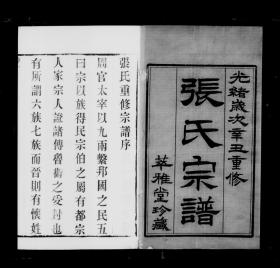 光緒歲次辛丑重修
張氏宗譜
華雅堂珍藏
張氏重修宗譜序
周官太宰以九兩繫邦國之民五
曰宗以族得民宗伯之屬有都宗
人家宗人證諸傳魯衛之受封也
有所謂六族七族而晉則有懷姓